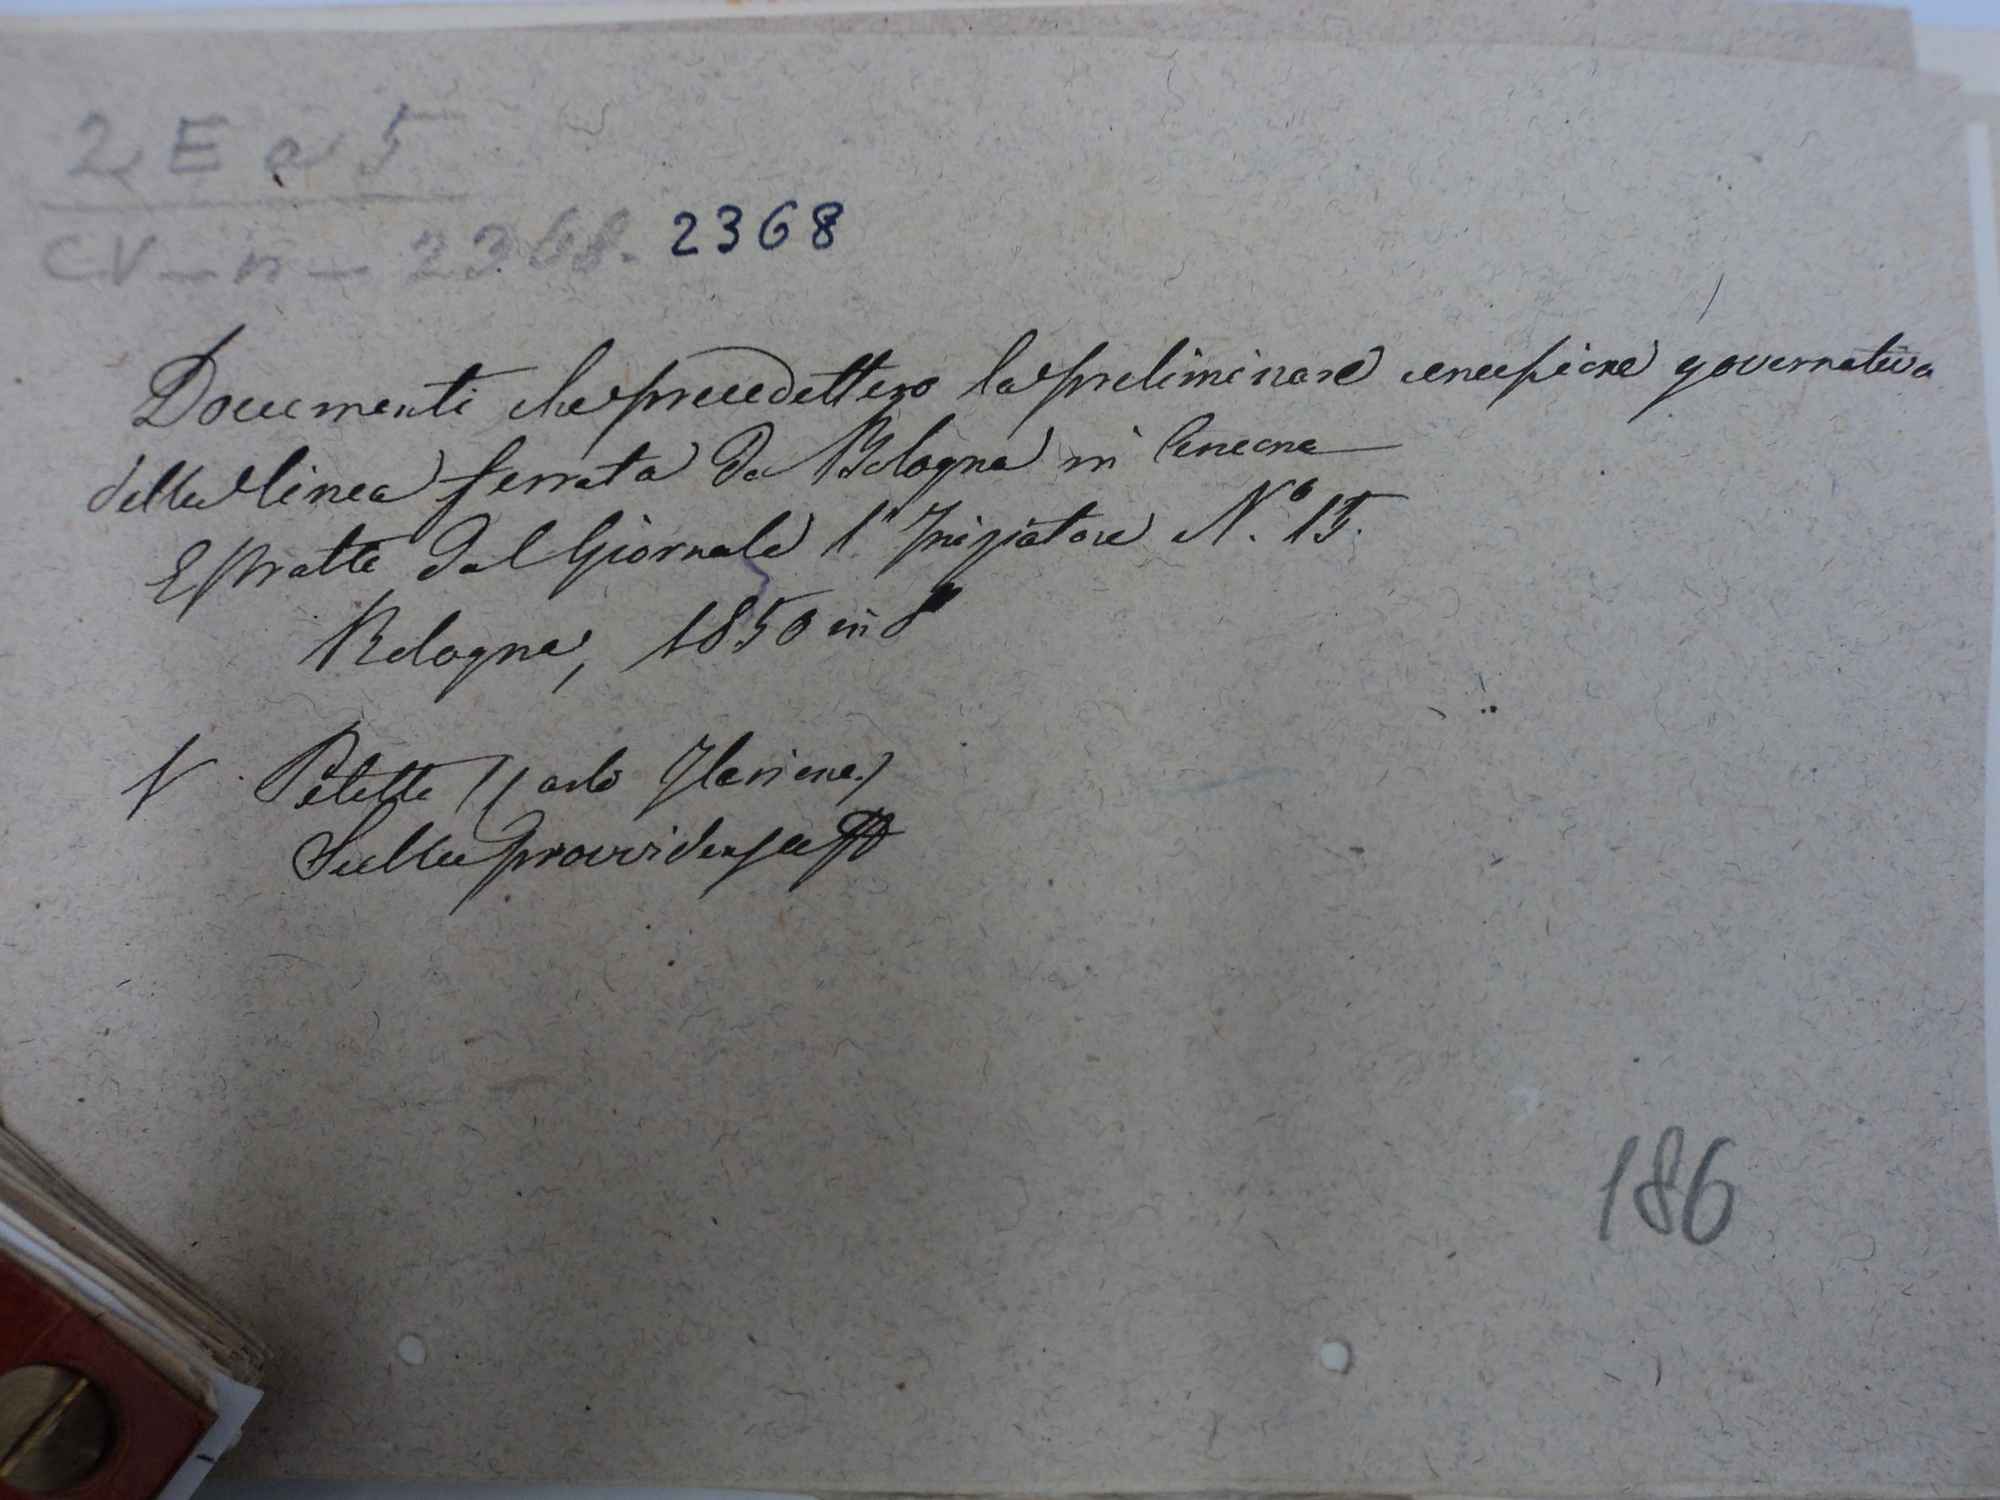 2 E a 5
CV - n - 2368. 2368
Documenti che precedettero la preliminare concessione governativa
della linea ferrata da Bologna in Ancona
Estratto dal Giornale l'Iniziatore N.º 15.
Bologna, 1850 in 8º
V. Petitti (Carlo Ilarione)
Sulla provvidenza
186